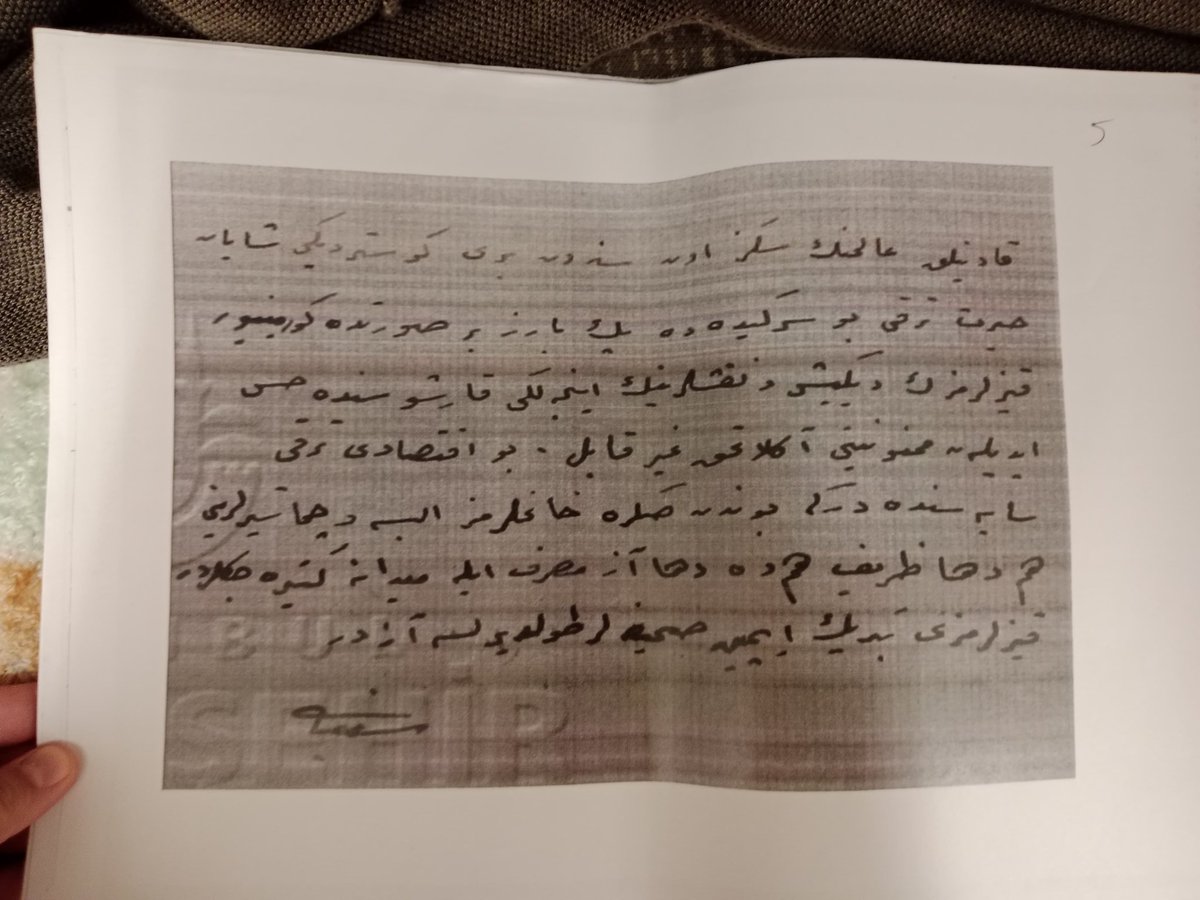 5
قادینلق عالمنك سكز اون سنه دن بری كوستردیكی شایان
حیرت ترقی بو سركیده ده پك بارز بر صورتده كورینیور
قیزلرمزك دیكیش و نقشلرینك اینجه لكی قارشوسنده حس
ایدیلن ممنونیتی آكلاتمق غیر قابل . بو اقتصادی ترقی
سایه سنده دركه بوندن صكره خانملرمز البسه و چماشیرلرینی
هم دها ظریف هم ده دها آز مصرف ایله میدانه كتیره جكلردر
قیزلرمزی تبریك ایچین صحیفه لر طولدیرلسه آزدر